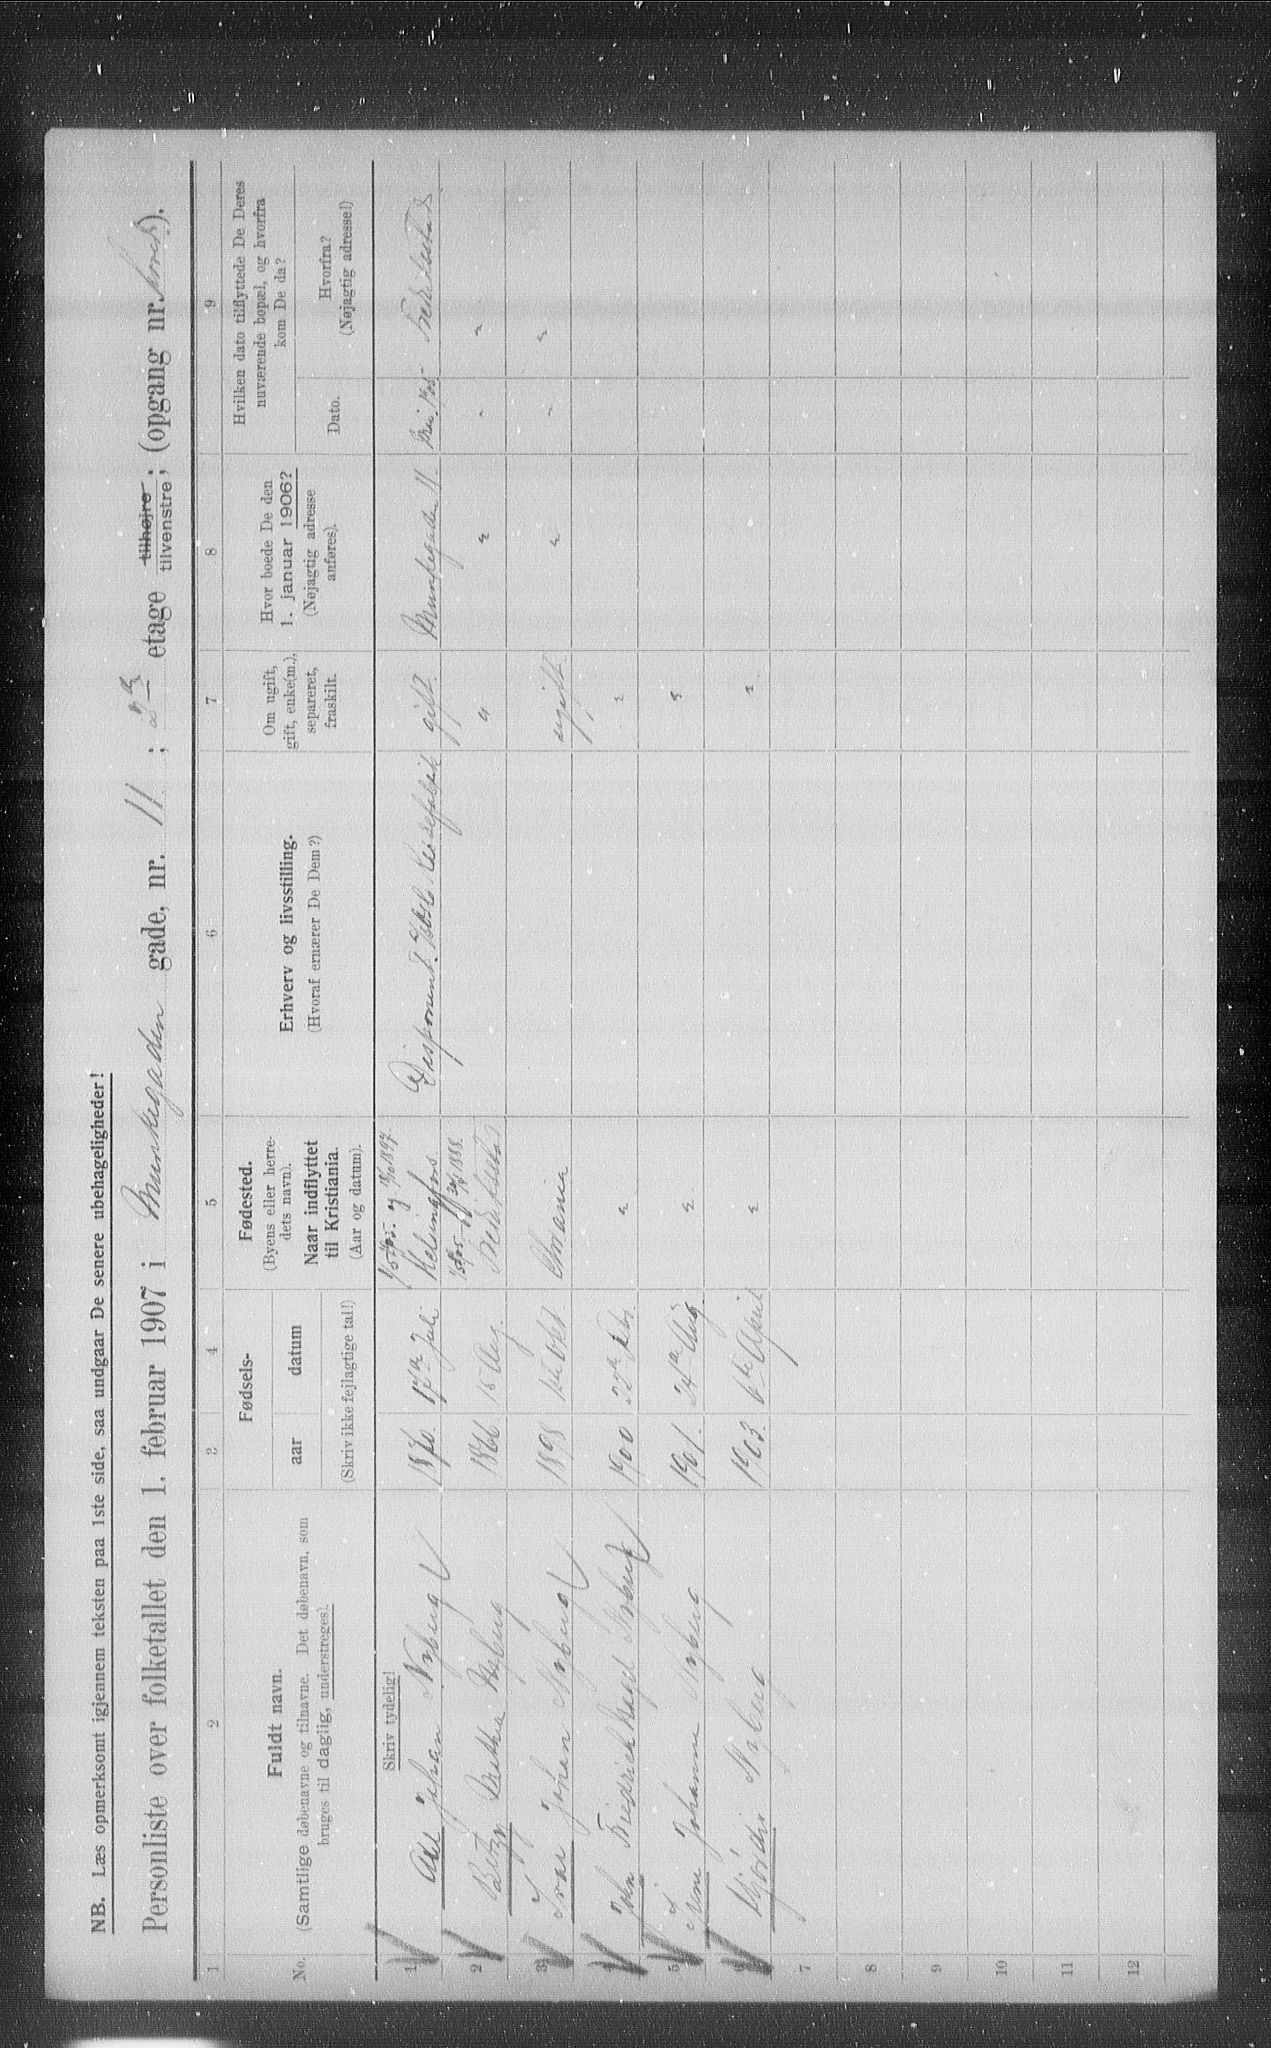 NB. Læs opmerksomt igjennem teksten paa 1ste side, saa undgaar De senere ubehageligheder!
Personliste over folketallet den 1. februar 1907 i Munkegaden gade, nr. 11; etage tilhøjre tilvenstre; (opgang nr.
1 2 3 4 5 6 7 8 9
No.
Fuldt navn.
(Samtlige døbenavne og tilnavne. Det døbenavn, som
bruges til daglig, understreges).
Fødsels-
aar datum
(Skriv ikke fejlagtige tal!)
Fødested.
(Byens eller herre-
dets navn).
Naar indflyttet
til Kristiania.
(Aar og datum).
Erhverv og livsstilling.
(Hvoraf ernærer De Dem?)
Om ugift,
gift, enke(m.),
separeret,
fraskilt.
Hvor boede De den
1. januar 1906?
(Nøjagtig adresse
anføres).
Hvilken dato tilflyttede De Deres
nuværende bopæl, og hvorfra
kom De da?
Dato.
Hvorfra?
(Nøjagtig adresse!)
Skriv tydelig!
1 Axel Johan Nyberg 1870. 17de Juli Helsingfors Disponent. gift. Munkegaden 11. Fredrikstad
2 Nyberg 1866. 15 Aug. Fredriksstad " " - "
3 Ivar Johan Nyberg 1898 Oktb. Chrania ugift " - "
4 John Fredrik Nyberg 1900 22de " "
5 Johanne Nyberg 1901. 24de Aug. " "
6 Nyberg 1903. 6te April " "
7
8
9
10
11
12